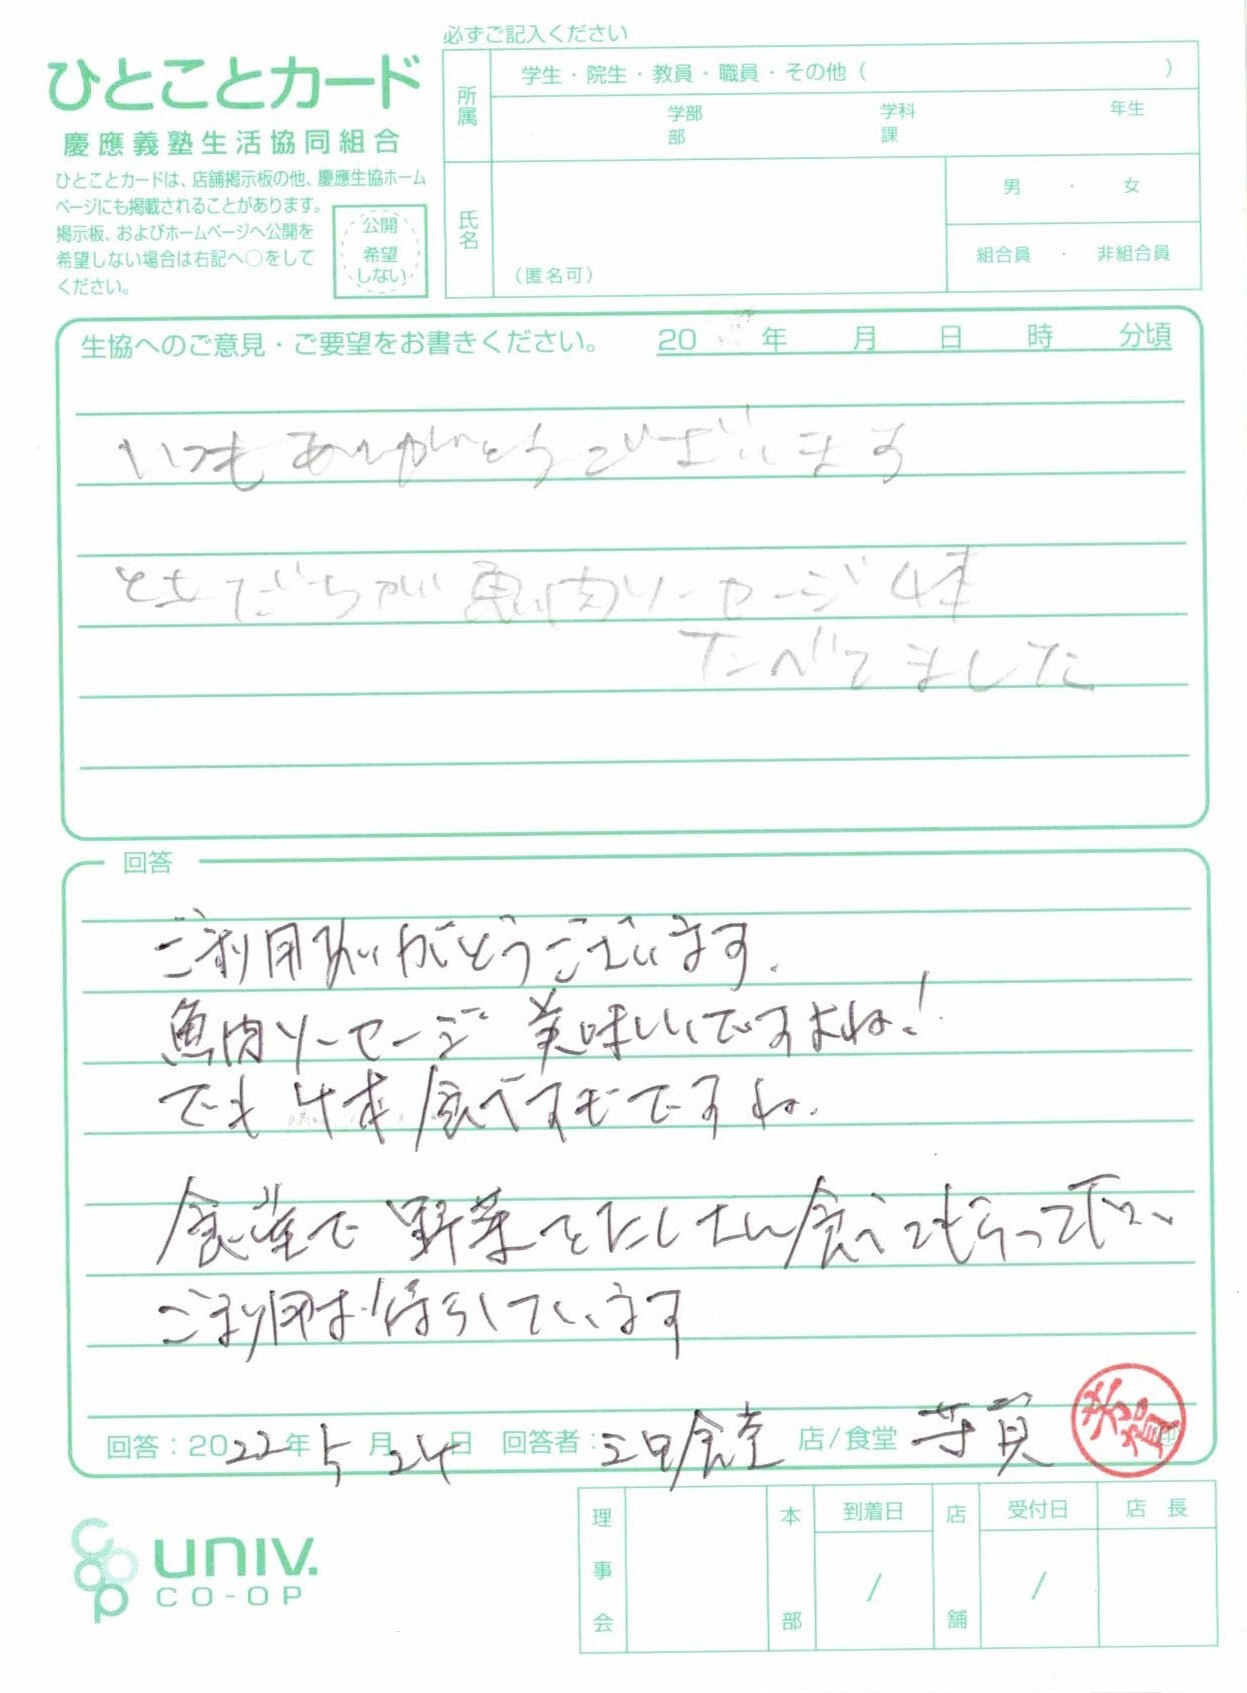 必ずご記入ください
ひとことカード
慶應義塾生活協同組合
ひとことカードは、店舗掲示板の他、慶應生協ホーム
ページにも掲載されることがあります。
掲示板、およびホームページへ公開を
希望しない場合は右記へ〇をして
ください。
公開
希望
しない
所属
学生・院生・教員・職員・その他（　　　）
学部　学科　年生
部　課
氏名
（匿名可）
男・女
組合員・非組合員
生協へのご意見・ご要望をお書きください。　20　年　月　日　時　分頃
いつもありがとうございます
ともだちが魚肉ソーセージ4本
たべてました
回答
ご利用ありがとうございます.
魚肉ソーセージ 美味しいですよね!
でも 4本 食べすぎですね.
食堂で 野菜をたくさん食べて下さい
ご利用お待ちしています
回答：2022年5月24日　回答者：三田食堂 店/食堂 芳賀
芳賀
印
UNIV.
CO-OP
理事会
本部
到着日
/
店舗
受付日
/
店長